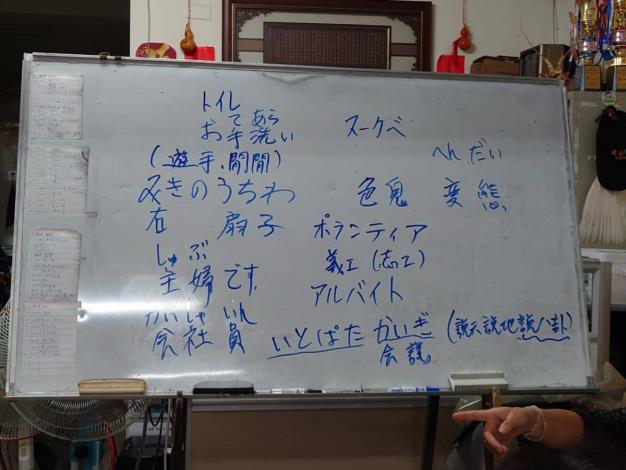 トイレ
て あら
お手洗い
(遊手、閒閒)
みぎのうちわ
右 扇子
しゅ ぶ
主婦です
かいしゃ いん
会社員
スークベ
へんだい
色鬼 変態
ボランティア
義工(志工)
アルバイト
いとばた かいぎ (說天說地說八卦)
会議